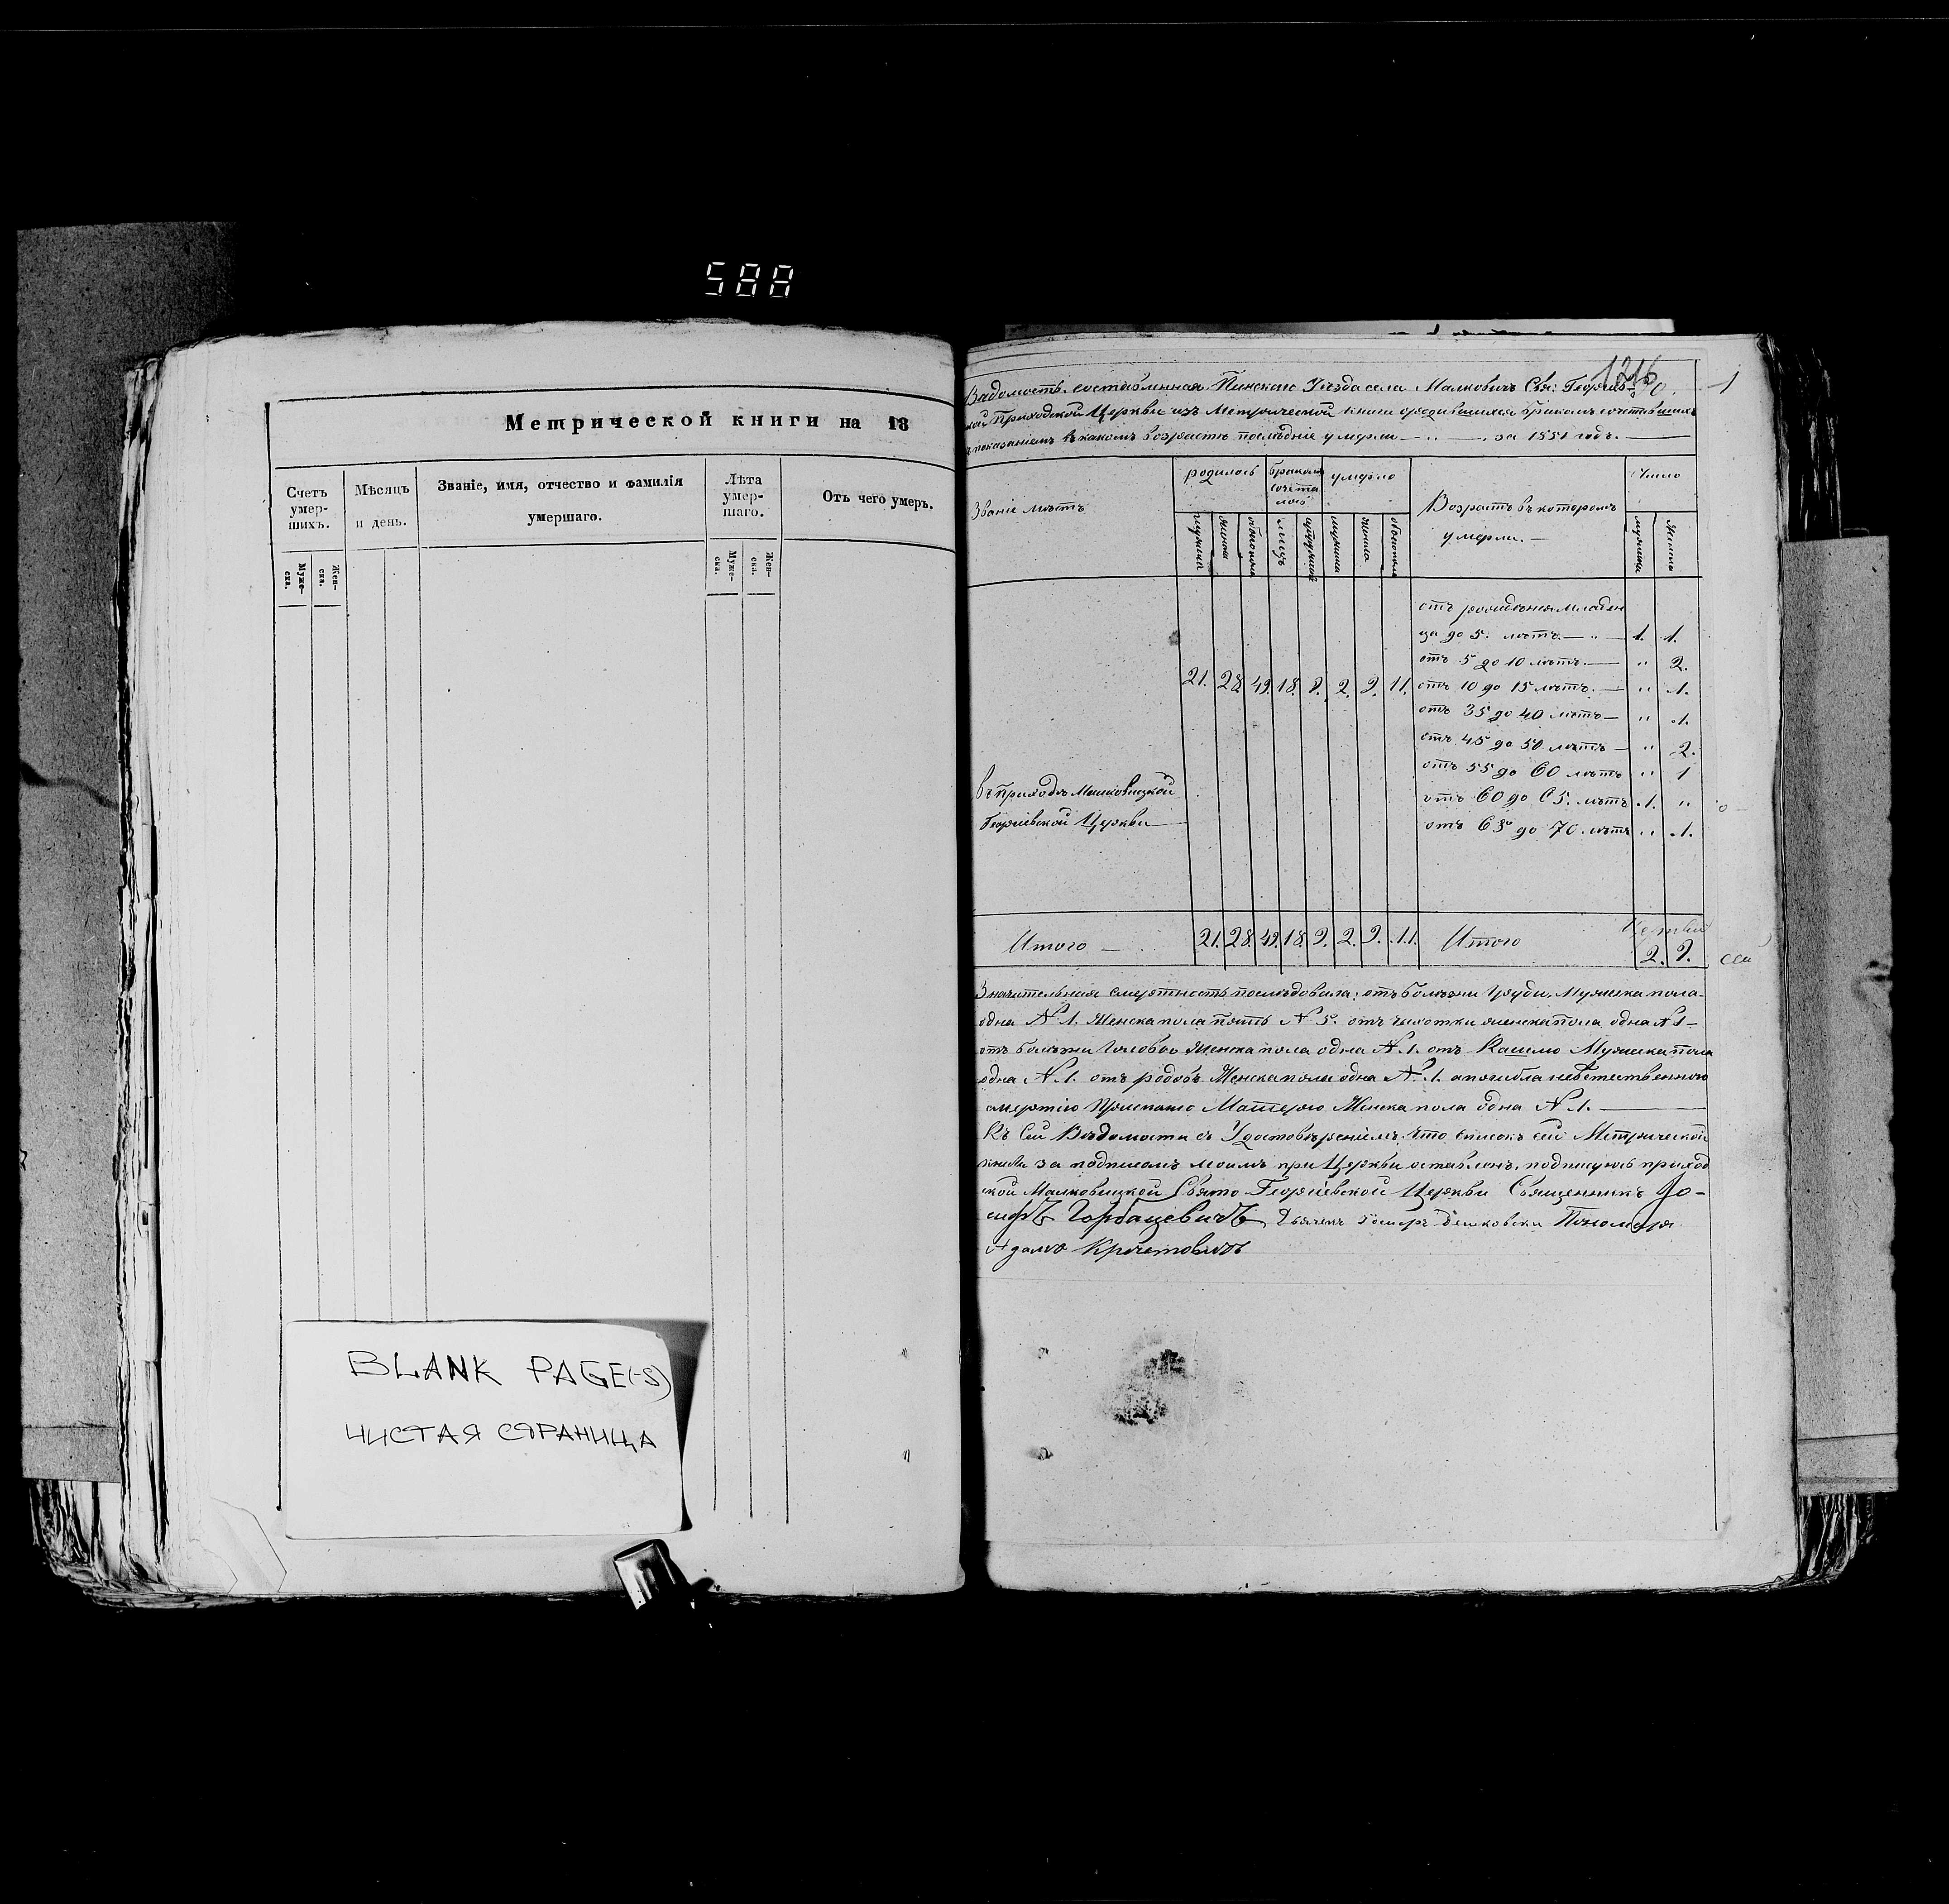 588
Метрической книги на 18
Счетъ умер-шихъ.
Мѣсяцъ и день.
Званіе, имя, отчество и фамилія умершаго.
Лѣта умер-шаго.
Отъ чего умеръ.
Муже-ска.
Жен-ска.
Муже-ска.
Жен-ска.
BLANK PAGE(-S)
ЧИСТАЯ СТРАНИЦА
1216
Вѣдомость составленная Пинскаго Уѣзда села Малковичъ Свя: Георгіев-
кой Приходской Церкви изъ Метрической книги бракомъ сочетавшихся
показаніемъ въ какомъ возрастѣ послѣдніе умерли — за 1851 годъ.
Званіе мѣстъ
родилось
бракомъ сочета лось
умерло
Возрастъ въ которомъ умерли. —
Число
мужеска
женска
обоего пола
лицъ
мужеска
женска
обоего пола
мужеска
женска
отъ рожденія младен
ца до 5. лѣтъ — „ — 1. 1.
отъ 5 до 10 лѣтъ. — „ 2.
21. 28. 49. 18. 9. 2. 9. 11. отъ 10 до 15 лѣтъ. — „ 1.
отъ 35 до 40 лѣтъ — „ 1.
отъ 45 до 50 лѣтъ — „ 2.
отъ 55 до 60 лѣтъ „ 1
отъ 60 до 65. лѣтъ 1. „
отъ 65 до 70 лѣтъ „ 1.
въ приходѣ Малковицкой
Георгіевской Церкви
Итого — 21. 28. 49. 18. 9. 2. 9. 11. Итого 2. 9.
Значительная смертность послѣдовала: отъ болѣзни груди, Мужеска пола
одна № 1. Женска пола пять № 5. отъ чахотки женска пола одна № 1 —
отъ болѣзни головы Женска пола одна № 1. отъ Кашлю Мужеска пола
одна № 1. отъ родовъ Женска пола одна № 1. а погибла неестественною
смертію Матерью Женска пола одна № 1. —
Къ сей Вѣдомости съ Удостовѣреніемъ, что списокъ сей Метрической
книги за подписомъ моимъ при Церкви оставленъ, подписуюсь приход
ской Малковицкой Свято Георгіевской Церкви Священникъ Іо-
сифъ Горбацевичъ Дьячекъ Пономарь
Адамъ